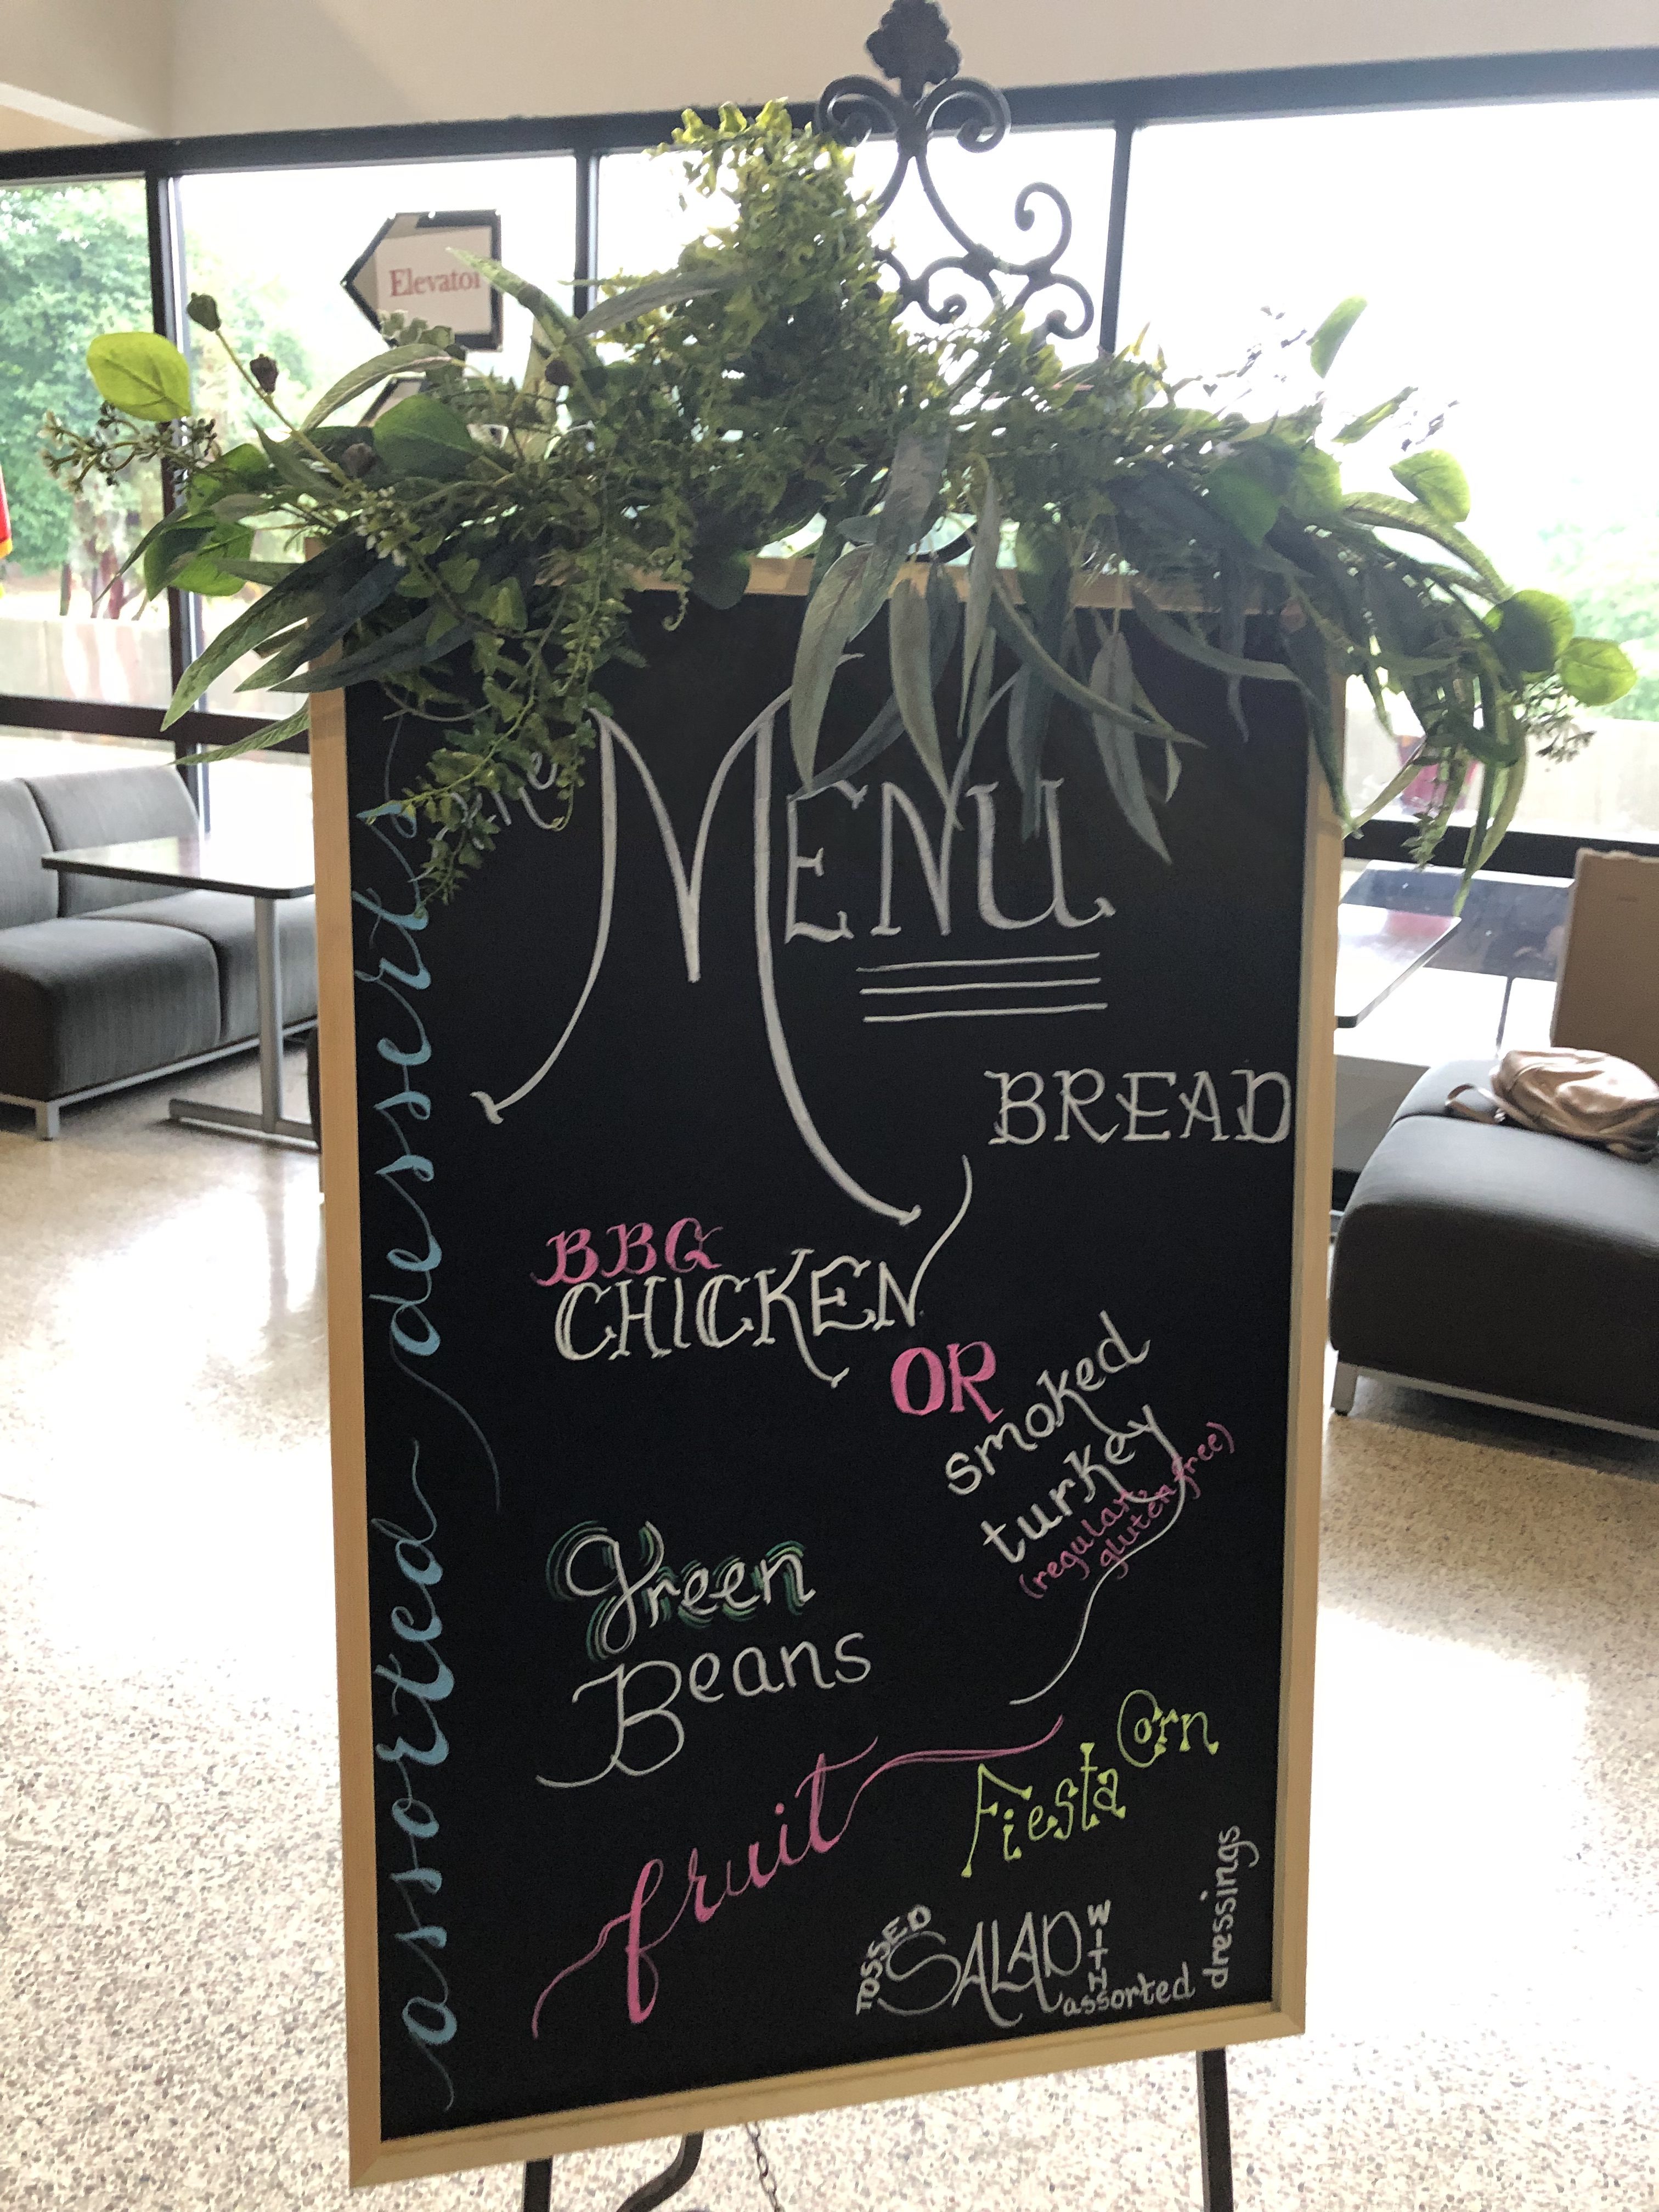 Elevator
the
MENU
BREAD
BBQ
CHICKEN
OR
smoked
turkey
(regular,
gluten free)
green
Beans
fruit
Fiesta Corn
TOSSED SALAD WITH assorted dressings
assorted desserts